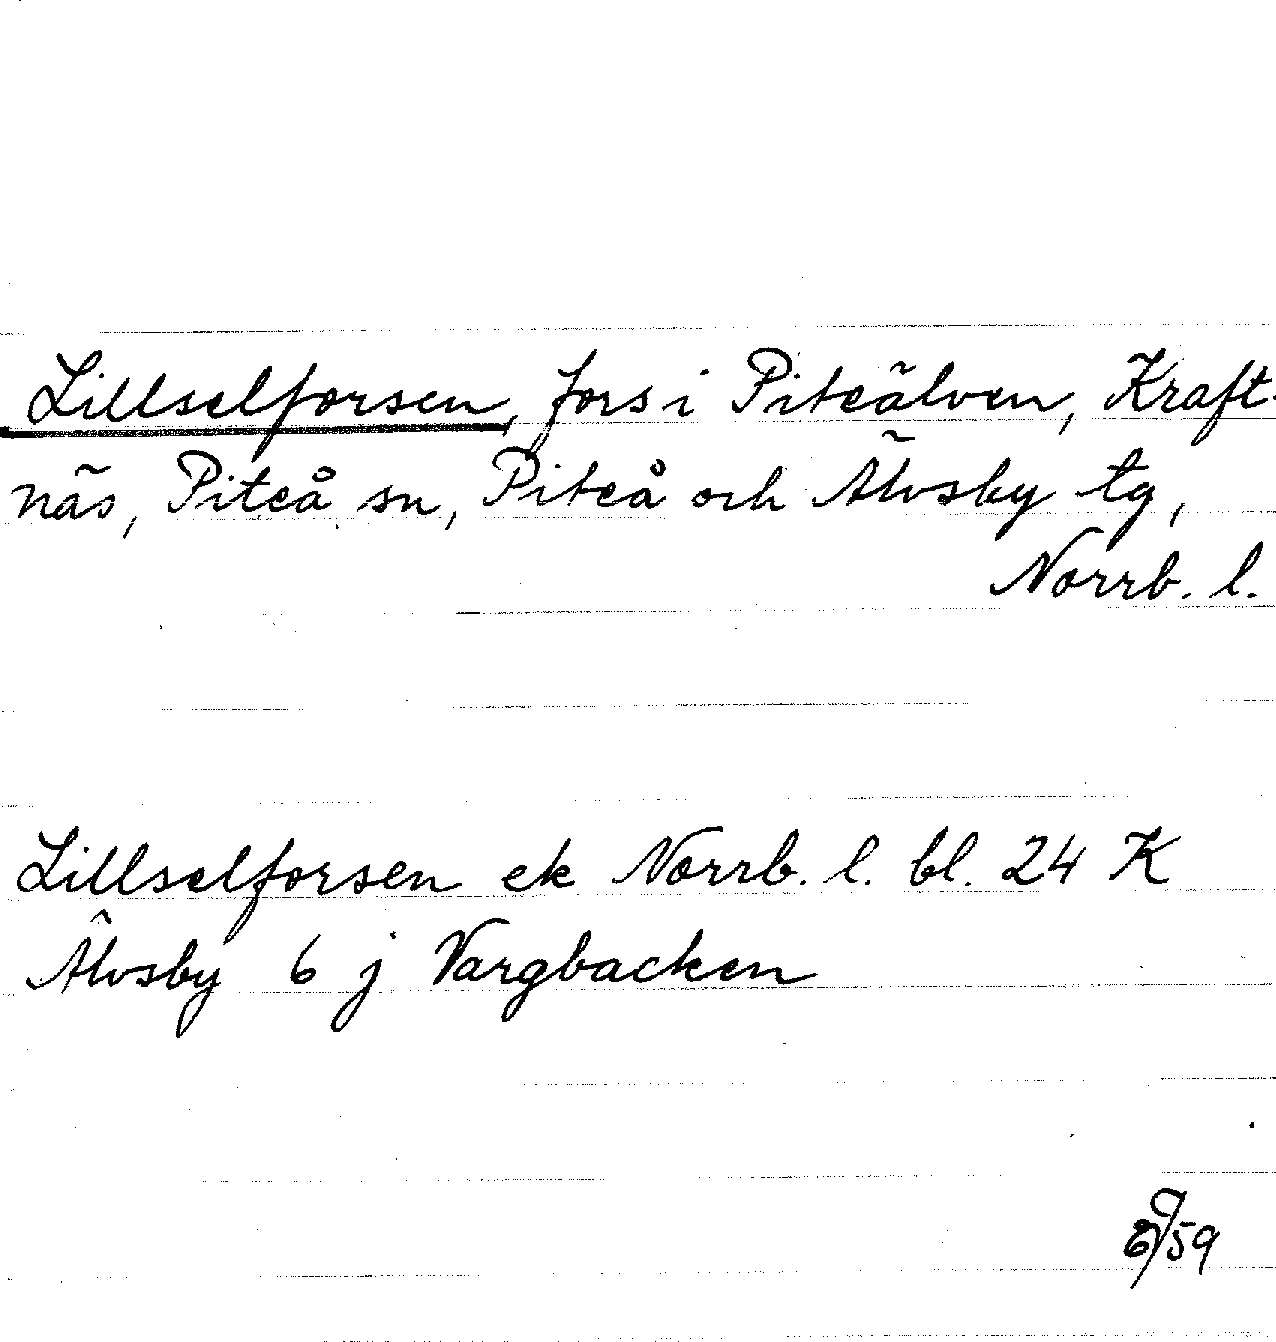 Lillselforsen, fors i Piteälven, Kraft-
näs, Piteå sn, Piteå och Älvsby tg,
Norrb. l.
Lillselforsen ek Norrb. l. bl. 24 K
Älvsby 6 j Vargbacken